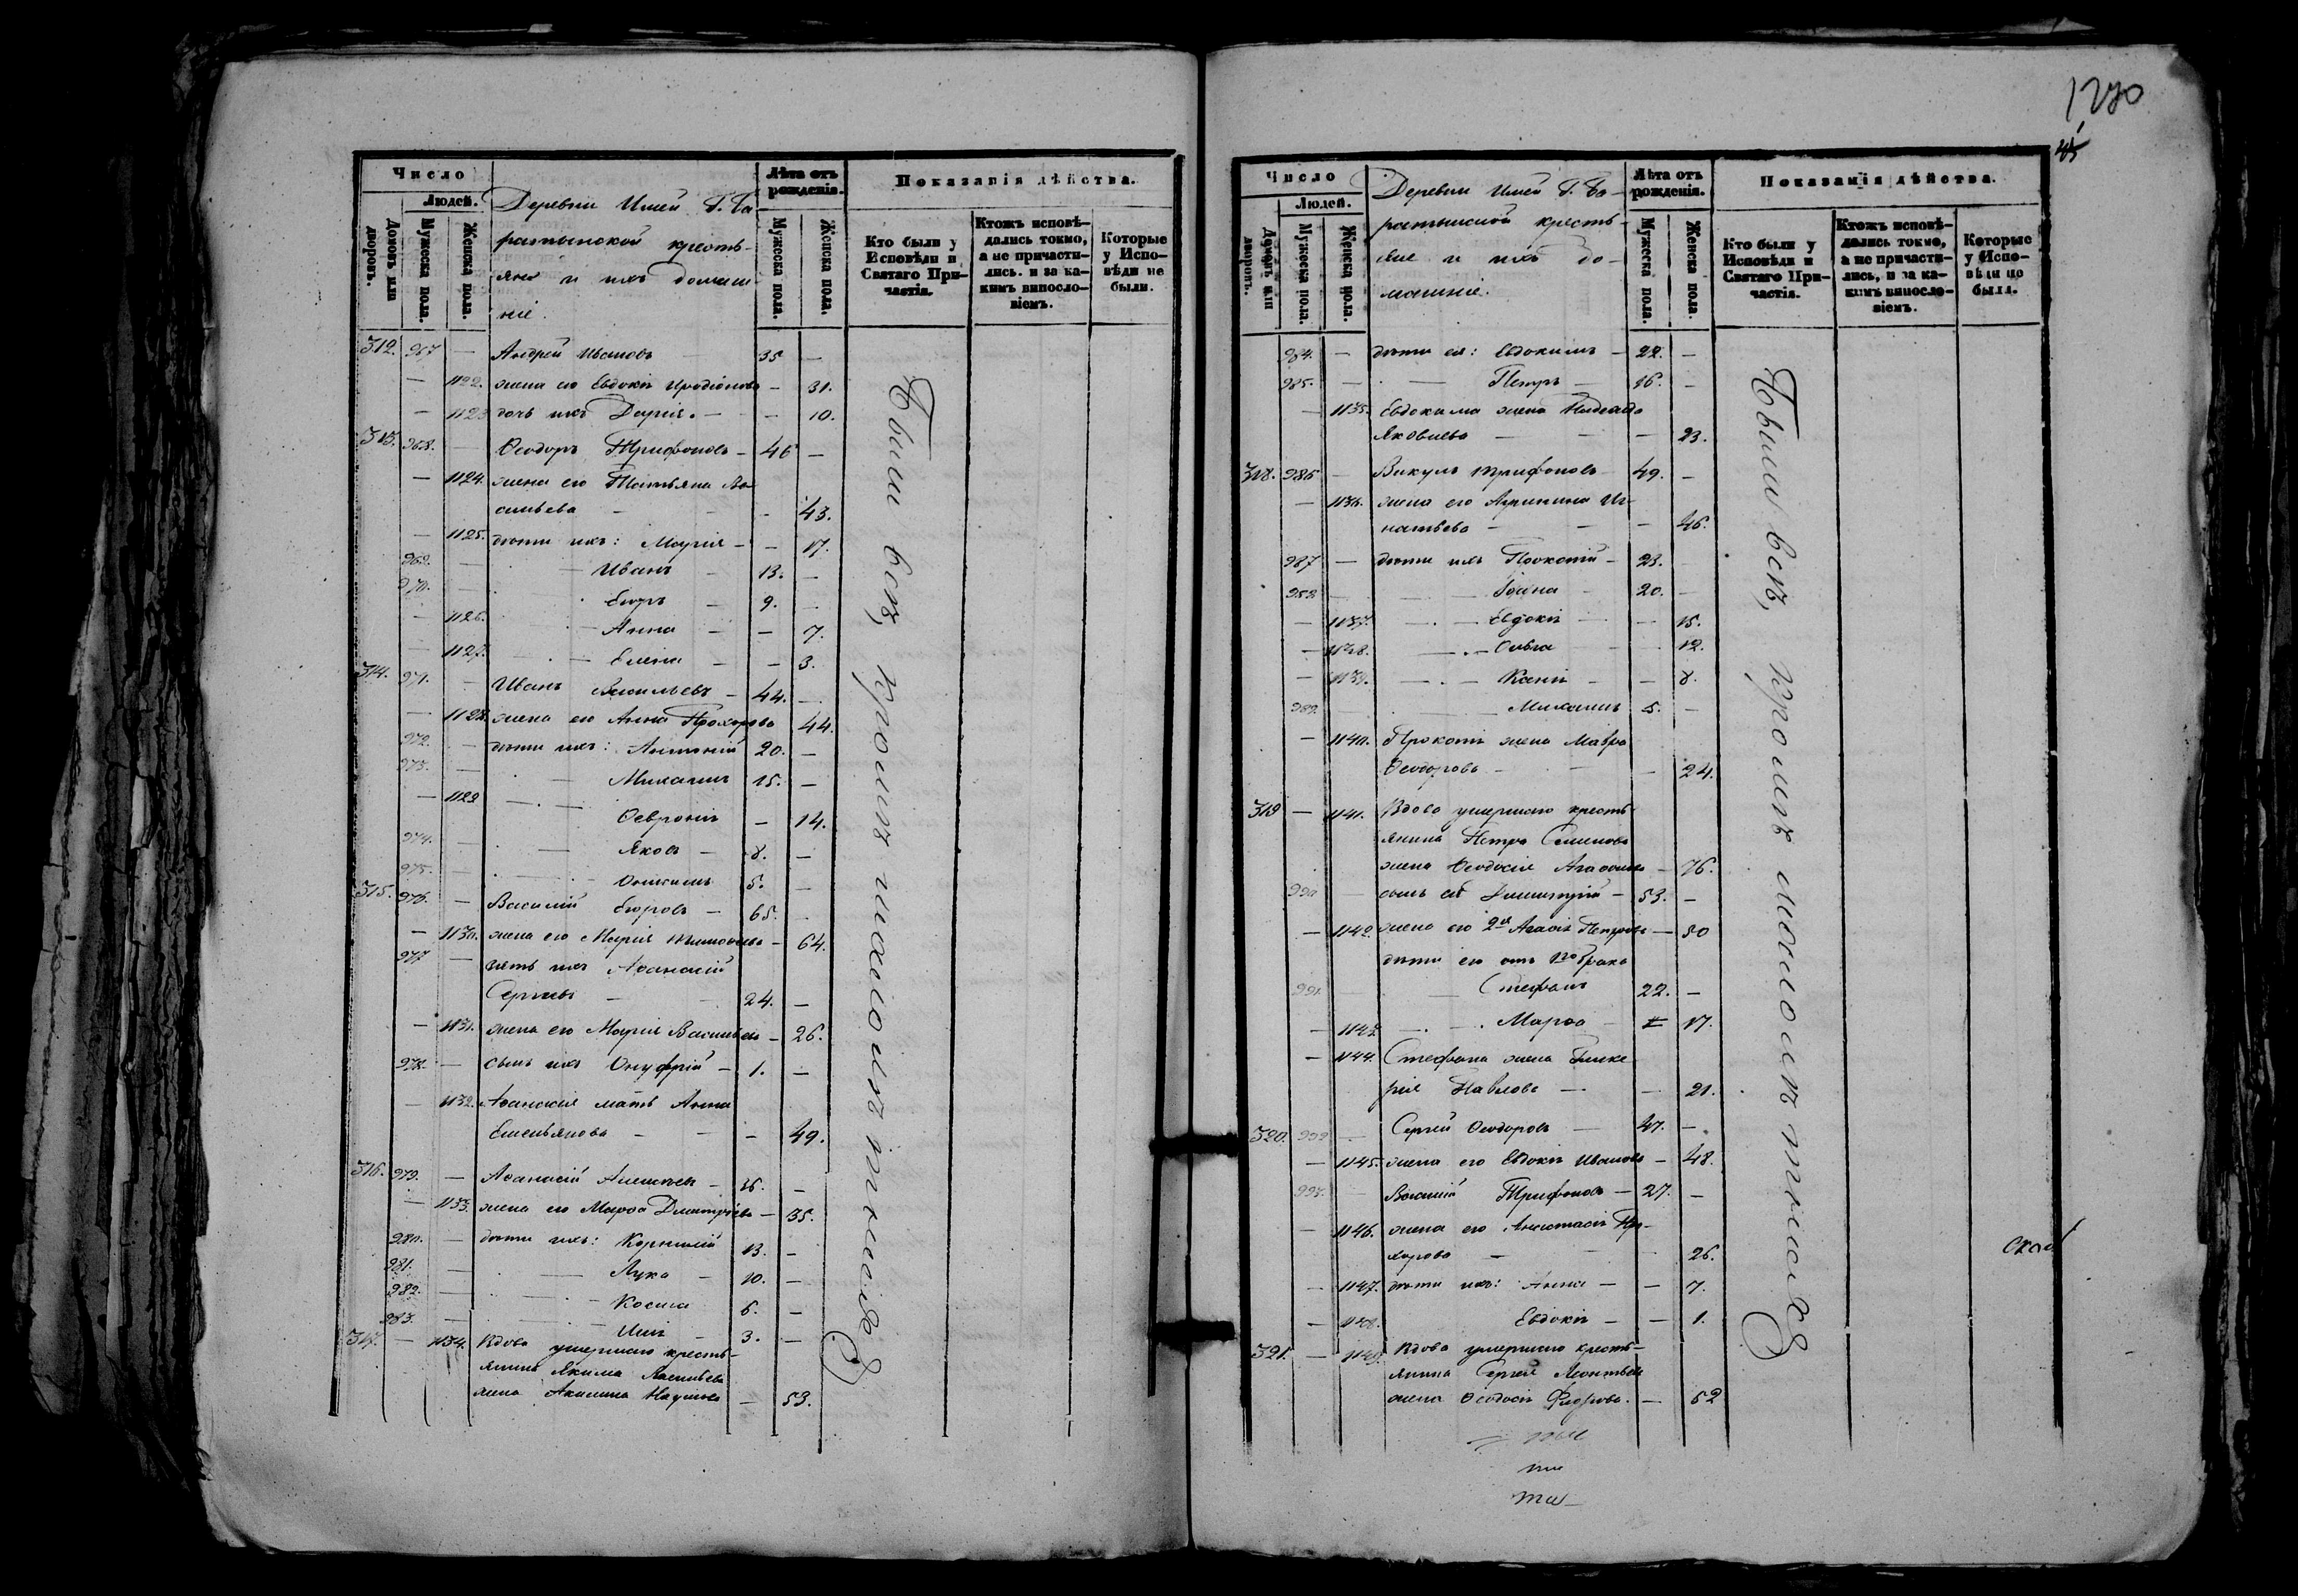 1270
45
Число
Людей.
Домовъ или дворовъ.
Мужеска пола.
Женска пола.
Деревни Имей Г. Ба-
ратынской кресть-
яне и ихъ домаш-
ніе.
Лѣта отъ рожденія.
Мужеска пола.
Женска пола.
Показанія дѣйства.
Кто были у Исповѣди и Святаго Причастія.
Ктожъ исповѣдались токмо, а не причастились, и за какимъ винословіемъ.
Которые у Исповѣди не были.
312. 967 — Андрей Ивановъ 35 —
— 1122. жена его Евдокія Иродіонова — 31.
— 1123 дочь ихъ Дарія. — — 10.
313. 968. — Ѳеодоръ Трифоновъ — 46 —
— 1124. жена его Татьяна Ва-
сильева — — 43.
— 1125. дѣти ихъ: Марія — — 17.
969. — Иванъ — 13. —
970. — Егоръ — 9. —
— 1126. Анна — — 7.
— 1127. Елена — — 3.
314. 971. — Иванъ Васильевъ — 44. —
— 1128. жена его Анна Прохорова 44.
972. — дѣти ихъ: Антоній 20. —
973. — Михаилъ 15. —
— 1129 Ѳевронія — 14.
974. — Яковъ — 8. —
975. — Онисимъ 5. —
315. 976. — Василій Егоровъ — 65. —
— 1130. жена его Марія Тимоѳеева — 64.
977 — зять ихъ Аѳанасій
Сергѣевъ — 24. —
— 1131. жена его Марія Васильева — 26.
978. — сынъ ихъ Онуфрій — 1. —
— 1132. Аѳанасія мать Анна
Емельянова — — 49.
316. 979. — Аѳанасій Алексѣевъ — 36. —
— 1133. жена его Марѳа Дмитріева — 35.
980. — дѣти ихъ: Корнилій 13. —
981. — Лука — 10. —
982. — Косма 6. —
983. — Илія — 3. —
317. — 1134. Вдова умершаго кресть-
янина Якима Васильева
жена Акилина Наумова — 53.
Были всѣ, кромѣ малолѣтнихъ
Число
Людей.
Домовъ или дворовъ.
Мужеска пола.
Женска пола.
Деревни Имей Г. Ба-
ратынской кресть-
яне и ихъ до-
машніе.
Лѣта отъ рожденія.
Мужеска пола.
Женска пола.
Показанія дѣйства.
Кто были у Исповѣди и Святаго Причастія.
Ктожъ исповѣдались токмо, а не причастились, и за какимъ винословіемъ.
Которые у Исповѣди не были.
984. — дѣти ея: Евдокимъ — 22. —
985. — Петръ — 16. —
— 1135. Евдокима жена Надежда
Яковлева — — 23.
318. 986 — Викулъ Трифоновъ 49. —
— 1136. жена его Агрипина Иг-
натьева — — 46.
987 — дѣти ихъ Прокопій — 23. —
988 — Іоанна — 20. —
— 1137. Евдокія — — 15.
— 1138. Ольга — 12.
— 1139. Ксенія — — 8.
989. — Михаилъ 5. —
— 1140. Прокопія жена Мавра
Ѳеодорова — — 24.
319 — 1141. Вдова умершаго кресть-
янина Петра Семенова
жена Ѳеодосія Агаѳонова — 76.
990 сынъ ея Димитрій — 53. —
— 1142. жена его 2я Агаѳія Петрова — 50
дѣти его отъ 1го брака
991. — Стефанъ 22. —
— 1143 Марѳа — 17.
— 1144. Стефана жена Глике-
рія Павлова — — 21.
320. 992 — Сергій Ѳеодоровъ — 47. —
— 1145. жена его Евдокія Иванова — 48.
993. — Василій Трифоновъ — 27. —
— 1146. жена его Анастасія Про-
хорова — 26.
— 1147. дѣти ихъ: Анна — — 7.
— 1148. Евдокія — — 1.
321. — 1149. Вдова умершаго кресть-
янина Сергѣя Леонтьева
жена Ѳеодосія Федорова. — 52
Были всѣ, кромѣ малолѣтнихъ